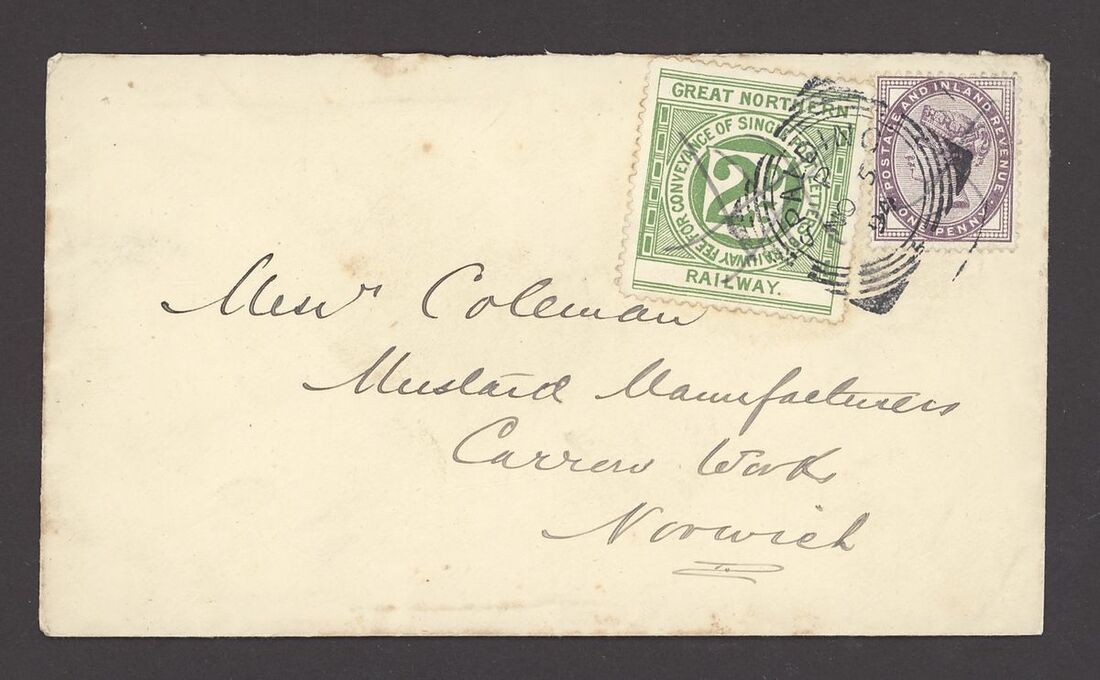 GREAT NORTHERN
RAILWAY FEE FOR CONVEYANCE OF SINGLE POST LETTERS
2D
RAILWAY.
POSTAGE AND INLAND REVENUE
ONE PENNY
NO 5
94
Messrs Coleman
Mustard Manufacturers
Carrow Works
Norwich